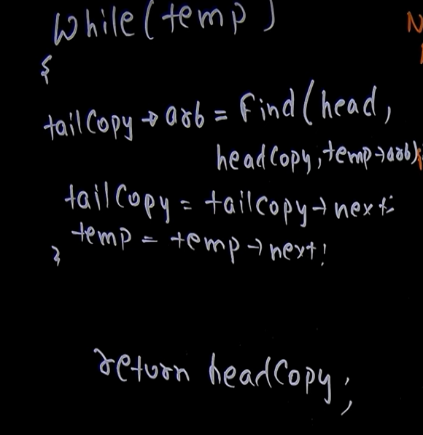 while(temp)
{
tailCopy→arb = find(head,
headCopy,temp→arb);
tailCopy = tailCopy→next;
temp = temp→next;
}
return headCopy;